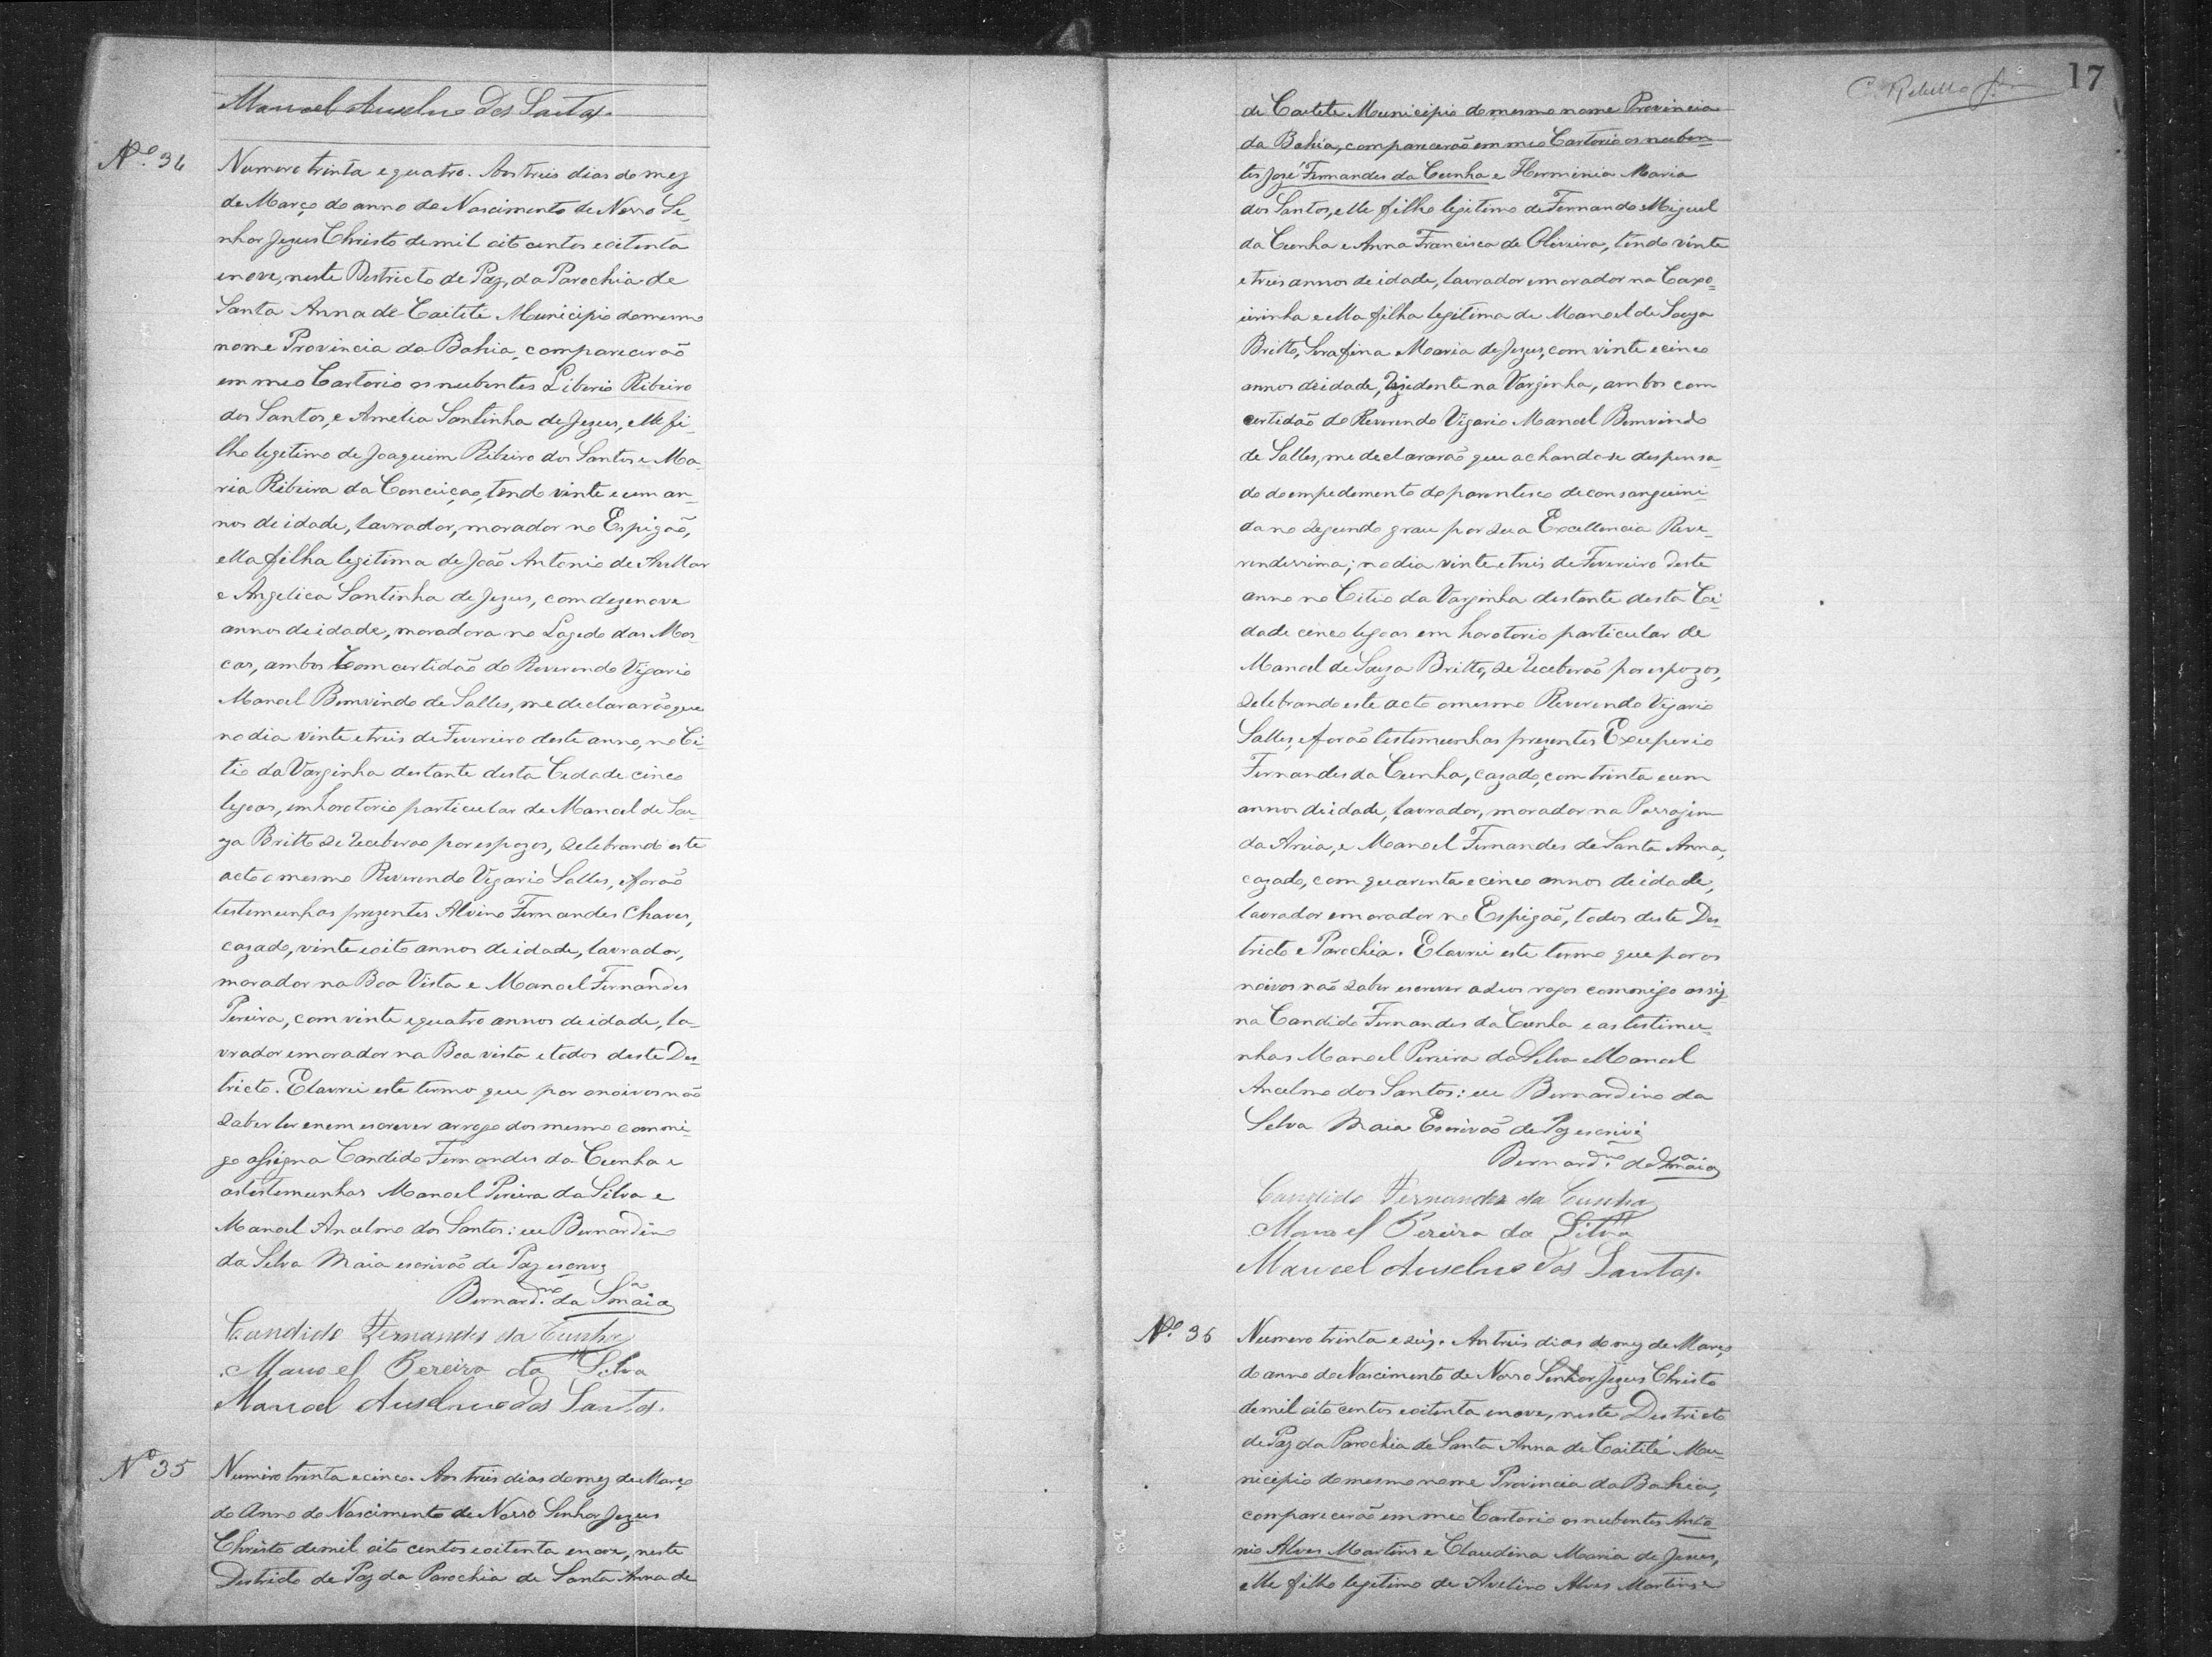 Manoel Anselmo dos Santos.
Nº 34
Numero trinta e quatro. Aos treis dias do mez
de Março do anno do Nascimento de Nosso Se-
nhor Jezus Christo de mil oito centos e oitenta
e nove, neste Destricto de Paz, da Parochia de
Santa Anna de Caitité Municipio do mesmo
nome Provincia da Bahia, comparecerão
em meo Cartorio os nubentes Liberio Ribeiro
dos Santos, e Amelia Santinha de Jezus, elle fi-
lho legitimo de Joaquim Ribeiro dos Santos e Ma-
ria Ribeira da Conceição, tendo vinte e um an-
nos de idade, lavrador, morador no Espigão,
ella filha legitima de João Antonio de
e Angelica Santinha de Jezus, com dezenove
annos de idade, moradora no Lagedo das Mos-
cas, ambos com certidão do Reverendo Vigario
Manoel Bemvindo de Salles, me declararão que
no dia vinte e treis de Fevereiro deste anno, no Ci-
tio da Varginha destante desta Cidade cinco
legoas, em horotorio particular de Manoel de Sou-
za Britto se receberão por espozos, selebrando este
acto o mesmo Reverendo Vigario Salles, e forão
testemunhas prezentes Alvino Fernandes Chaves,
cazado, vinte e oito annos de idade, lavrador,
morador na Boa Vista e Manoel Fernandes
Pereira, com vinte e quatro annos de idade, la-
vrador e morador na Boa vista e todos deste Des-
tricto. E lavrei este termo que por o noivos não
saber ler e nem escrever arrogo dos mesmo commi-
go assigna Candido Fernandes da Cunha e
as testemunhas Manoel Pereira da Silva e
Manoel Ancelmo dos Santos: eu Bernardino
da Selva Maia escrivão de Paz escrevi
Bernard.no da S.a Maia
Candido Fernandes da Cunha
Manoel Pereira da Silva
Manoel Anselmo dos Santos.
Nº 35
Numiro trinta e cinco. Aos treis dias do mez de Março
do Anno do Nascimento de Nosso Senhor Jezus
Christo de mil oito centos e oitenta e nove, neste
Destricto de Paz da Parochia de Santa Anna de
17
C. Rebello
de Caitete Municipio do mesmo nome Provincia
da Bahia, comparecerão em meo Cartorio os nuben-
tes José Fernandes da Cunha e Herminia Maria
dos Santos, elle filho legitimo de Fernando Miguel
da Cunha e Anna Francisca de Oliveira, tendo vinte
e treis annos de idade, lavrador e morador na Capo-
eirinha e ella filha legitima de Manoel de Souza
Britto, Serafina Maria de Jezus, com vinte e cinco
annos de idade, rezidente na Varginha, ambos com
certidão do Reverendo Vigario Manoel Bemvindo
de Salles, me declararão que achando-se despensa-
do do empedemento do parentesco de consanguini-
da no segundo grau por sua Excellencia Reve-
rendissima; no dia vinte e treis de Fevereiro deste
anno no Citio da Varginha destante desta Ci-
dade cinco legoas em horotorio particular de
Manoel de Souza Britto, se receberão por espozos,
selebrando este acto o mesmo Reverendo Vigario
Salles, e forão testemunhas prezentes Exuperio
Fernandes da Cunha, cazado, com trinta e um
annos de idade, lavrador, morador na Passagem
da Areia, e Manoel Fernandes de Santa Anna,
cazado, com quarenta e cinco annos de idade,
lavrador e morador no Espigão, todos deste Des-
tricto e Parochia. E lavrei este termo que por os
noivos não saber escrever a seos rogos commigo assig-
na Candido Fernandes da Cunha e as testimu-
nhas Manoel Pereira da Selva e Manoel
Ancelmo dos Santos: eu Bernardino da
Selva Maia Escrivão de Paz escrivi
Bernard.no da S.a Maia
Candido Fernandes da Cunha
Manoel Pereira da Silva
Manoel Anselmo dos Santos.
Nº 36
Numero trinta e seis. Aos treis dias do mez de Março
do anno do Nascimento de Nosso Senhor Jezus Christo
de mil oito centos e oitenta e nove, neste Destricto
de Paz da Parochia de Santa Anna de Caitité Mu-
nicipio do mesmo nome Provincia da Bahia,
comparecerão em meo Cartorio os nubentes Anto-
nio Alves Martins e Claudina Maria de Jesus,
elle filho legitimo de Avelino Alves Martins e